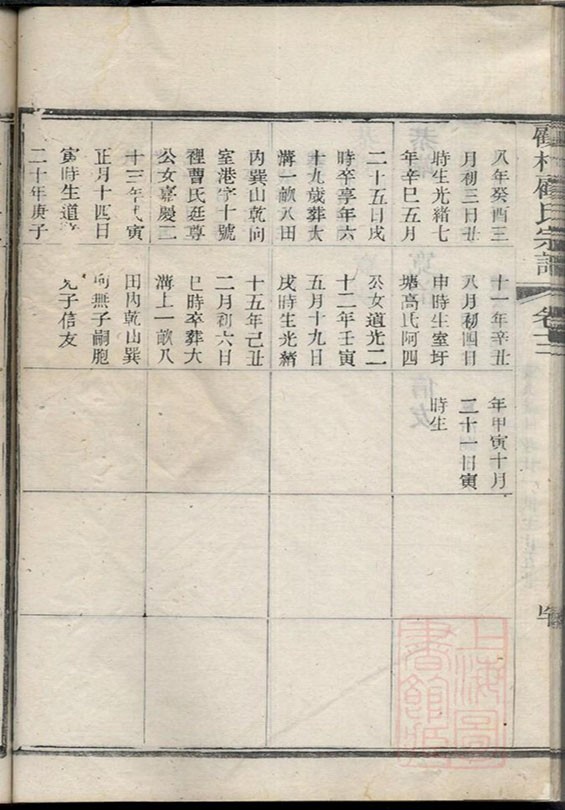 顧氏宗譜
卷十二
八年癸酉三
月初三日丑
時生光緒七
年辛巳五月
二十五日戌
時卒享年六
十九歲葬大
溝一畝八田
內巽山乾向
室港字十號
裡曹氏廷尊
公女嘉慶二
十三年戊寅
正月十四日
寅時生道
二十年庚子
十一年辛丑
八月初四日
申時生室圩
塘高氏阿四
公女道光二
十二年壬寅
五月十九日
戌時生光緒
十五年己丑
二月初六日
巳時卒葬大
溝上一畝八
田內乾山巽
向無子嗣胞
兄子信友
年甲寅十月
二十一日寅
時生
上海圖
書館藏